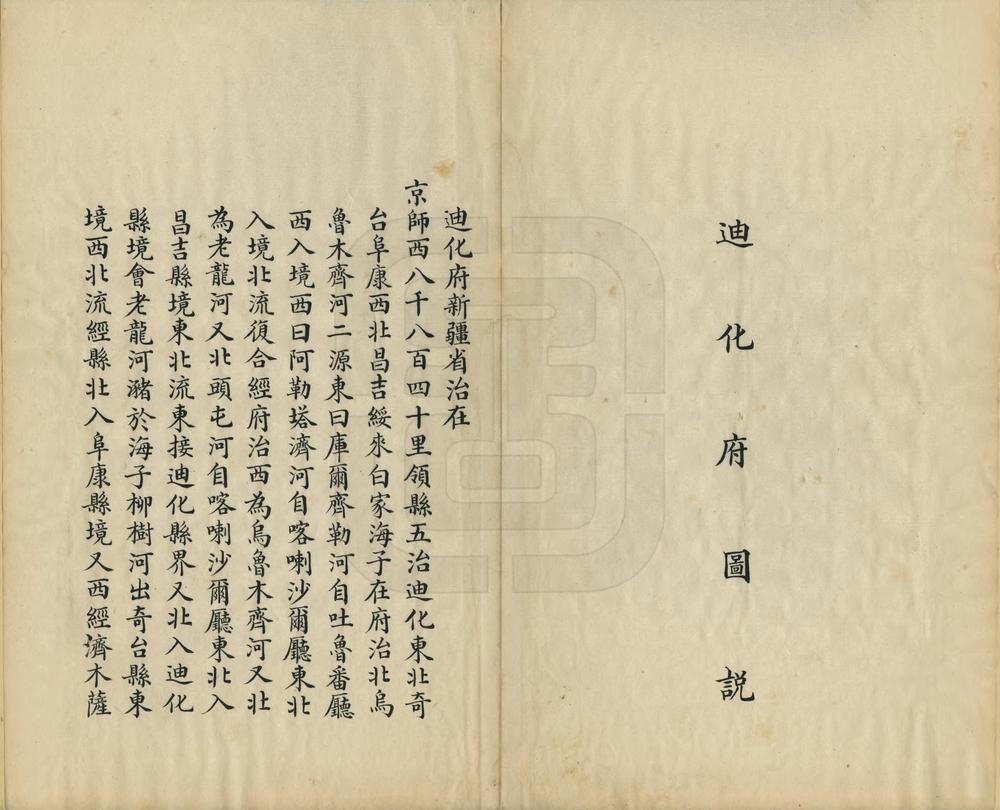 迪化府圖説
迪化府新疆省治在
京師西八千八百四十里領縣五治迪化東北奇
台阜康西北昌吉綏來白家海子在府治北烏
魯木齊河二源東曰庫爾齊勒河自吐魯番廳
西入境西曰阿勒塔濟河自喀喇沙爾廳東北
入境北流復合經府治西為烏魯木齊河又北
為老龍河又北頭屯河自喀喇沙爾廳東北入
昌吉縣境東北流東接迪化縣界又北入迪化
縣境會老龍河瀦於海子柳樹河出奇台縣東
境西北流經縣北入阜康縣境又西經濟木薩